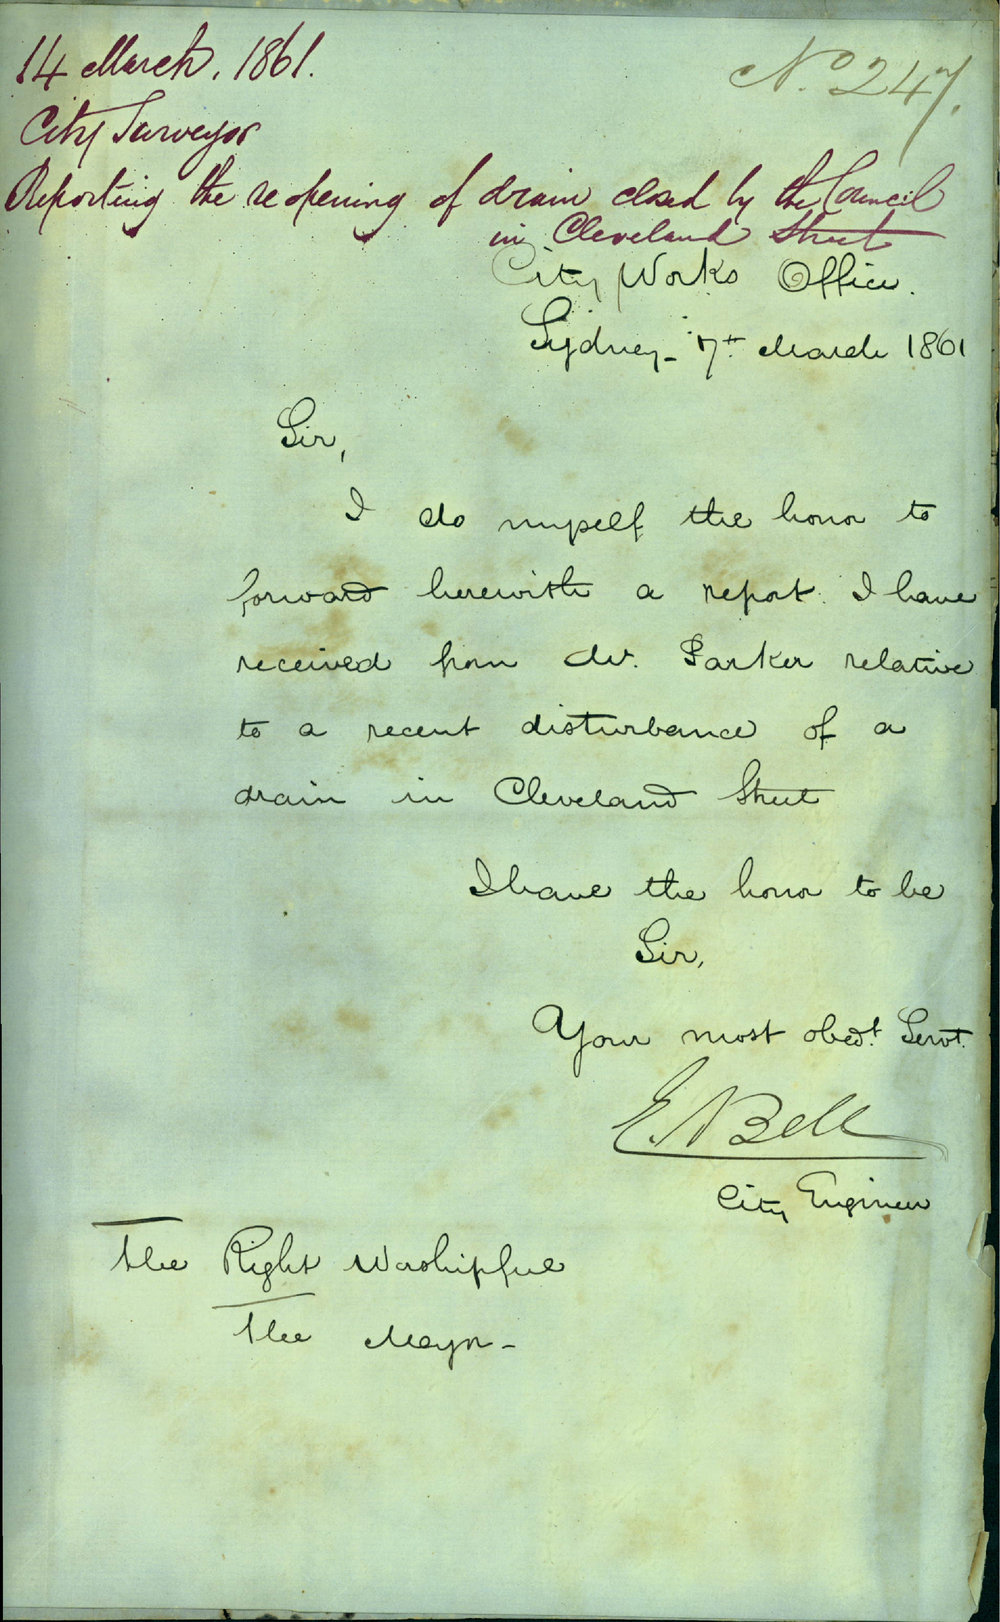 14 March, 1861.
No. 247.
City Surveyor
Reporting the reopening of drain closed by the Council
in Cleveland Street
City Works Office.
Sydney - 7th March 1861
Sir,
I do myself the honor to
forward herewith a report I have
received from Mr. Parker relative
to a recent disturbance of a
drain in Cleveland Street
I have the honor to be
Sir,
Your most obedt. Servt.
E. Bell
City Engineer
The Right Worshipful
The Mayor -